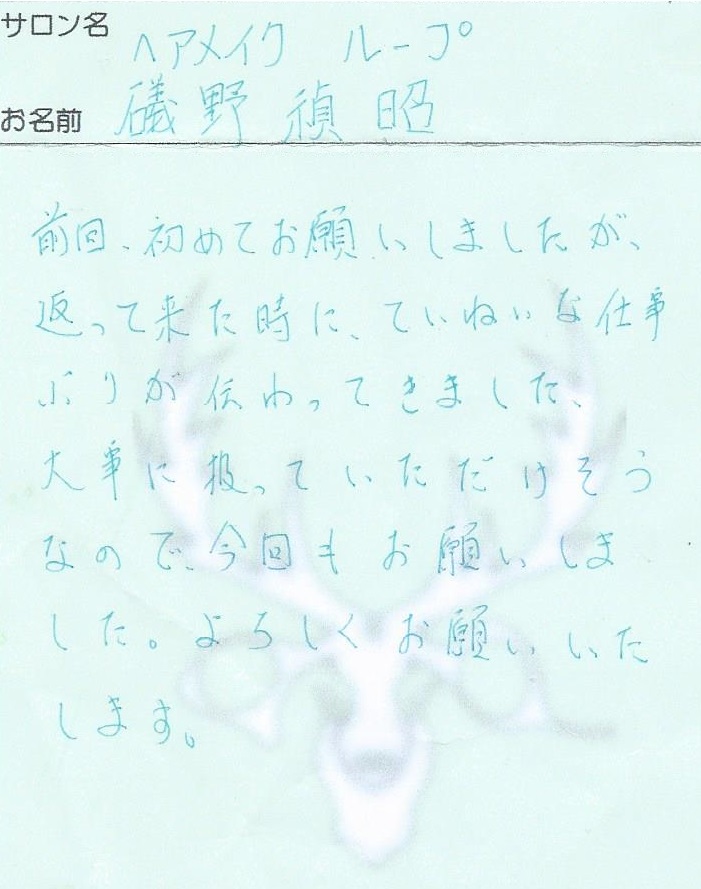 サロン名 ヘアメイク ループ
お名前 礒野 禎昭
前回、初めてお願いしましたが、
返って来た時に、ていねいな仕事
ぶりが伝わってきました、
大事に扱っていただけそう
なので、今回もお願いしま
した。よろしくお願いいた
します。